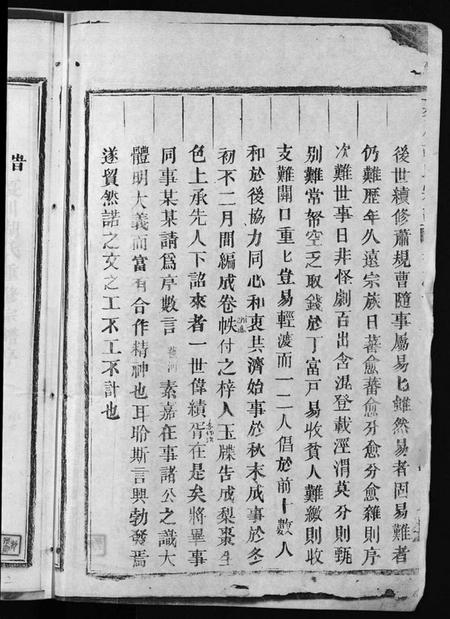 後世續修蕭規曹隨事屬易也雖然易者固易難者
仍難歷年久遠宗族日蕃愈蕃愈分愈分愈雜則序
次難世事日非怪劇百出含混登載涇渭莫分則甄
別難常帑空乏取錢於丁富戸易收貧人難繳則收
支難開口重七登易輕渡而一二人倡於前十數人
和於後協力同心和衷共濟始事於秋末成事於冬
初不二月間編成卷帙付之梓人玉牒告成梨棗生
色上承先人下詔來者一世偉績胥在是矣將畢事
同事某某請爲序數言 素嘉在事諸公之識大
體明大義而富有合作精神也耳聆斯言興勃發焉
遂貿然諾之文之工不工不計也
借